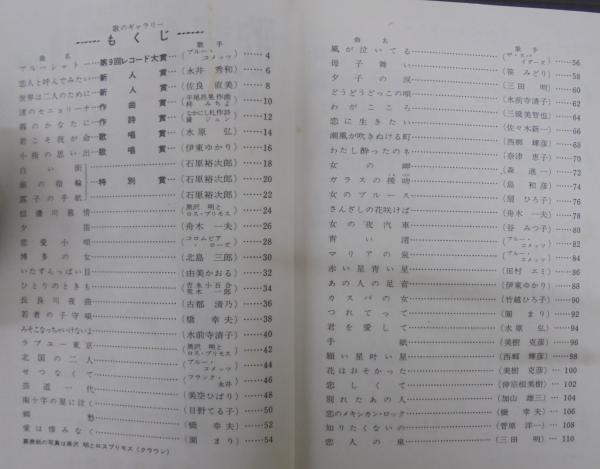 歌のギャラリー
もくじ
曲名 歌手
ブルーシャトー……第9回レコード大賞…(ブルー・コメッツ)……4
恋人と呼んでみたい…新人賞…(永井秀和)……6
世界は二人のために…新人賞…(佐良直美)……8
渚のセニョリーナ…作曲賞…(平尾昌晃作曲 梓みちよ)……10
霧のかなたに…作詩賞…(なかにし礼作詩 黛ジュン)……12
君こそわが命…歌唱賞…(水原弘)……14
小指の思い出…歌唱賞…(伊東ゆかり)……16
白い街…(石原裕次郎)……18
銀の指輪…特別賞…(石原裕次郎)……20
露子の手紙…(石原裕次郎)……22
信濃川慕情……(黒沢明とロス・プリモス)……24
夕笛……(舟木一夫)……26
恋愛小唄……(コロムビア・ローズ)……28
博多の女……(北島三郎)……30
いたずらっぽい目……(由美かおる)……32
ひとりのときも……(吉永小百合 荒木一郎)……34
長良川夜曲……(古都清乃)……36
若者の子守唄……(橋幸夫)……38
みそこなっちゃいけないよ……(水前寺清子)……40
ラブユー東京……(黒沢明とロス・プリモス)……42
北国の二人……(ブルー・コメッツ)……44
せつなくて……(フランク・永井)……46
芸道一代……(美空ひばり)……48
南十字の星に泣く……(日野てる子)……50
郷愁……(橋幸夫)……52
愛は惜みなく……(園まり)……54
裏表紙の写真は黒沢明とロスプリモス(クラウン)
曲名 歌手
風が泣いてる……(ザ・スパイダース)……56
母子舞い……(笹みどり)……58
夕子の涙……(三田明)……60
どうどうどっこの唄……(水前寺清子)……62
わがこころ……(三橋美智也)
恋に生きたい……(佐々木新一)……66
潮風が吹きぬける町……(西郷輝彦)……68
わたし酔ったのネ……(奈津恵子)……70
女の岬……(森進一)
ガラスの接吻……(島和彦)
女のブルース……(扇ひろ子)……76
さんざしの花咲けば……(舟木一夫)……78
女の夜汽車……(谷みつ子)……80
青い渚……(ブルー・コメッツ)……82
マリアの泉……(ブルー・コメッツ)……84
赤い星青い星……(田村エミ)……86
あの人の足音……(伊東ゆかり)……88
カスバの女……(竹越ひろ子)……90
つれてって……(園まり)……92
君を愛して……(水原弘)……94
手紙……(美樹克彦)……96
願い星叶い星……(西郷輝彦)……98
花はおそかった……(美樹克彦)……100
恋しくて……(倍宗根美樹)……102
別れたあの人……(加山雄三)……104
恋のメキシカン・ロック……(橋幸夫)……106
知りたくないの……(菅原洋一)……108
恋人の泉……(三田明)……110